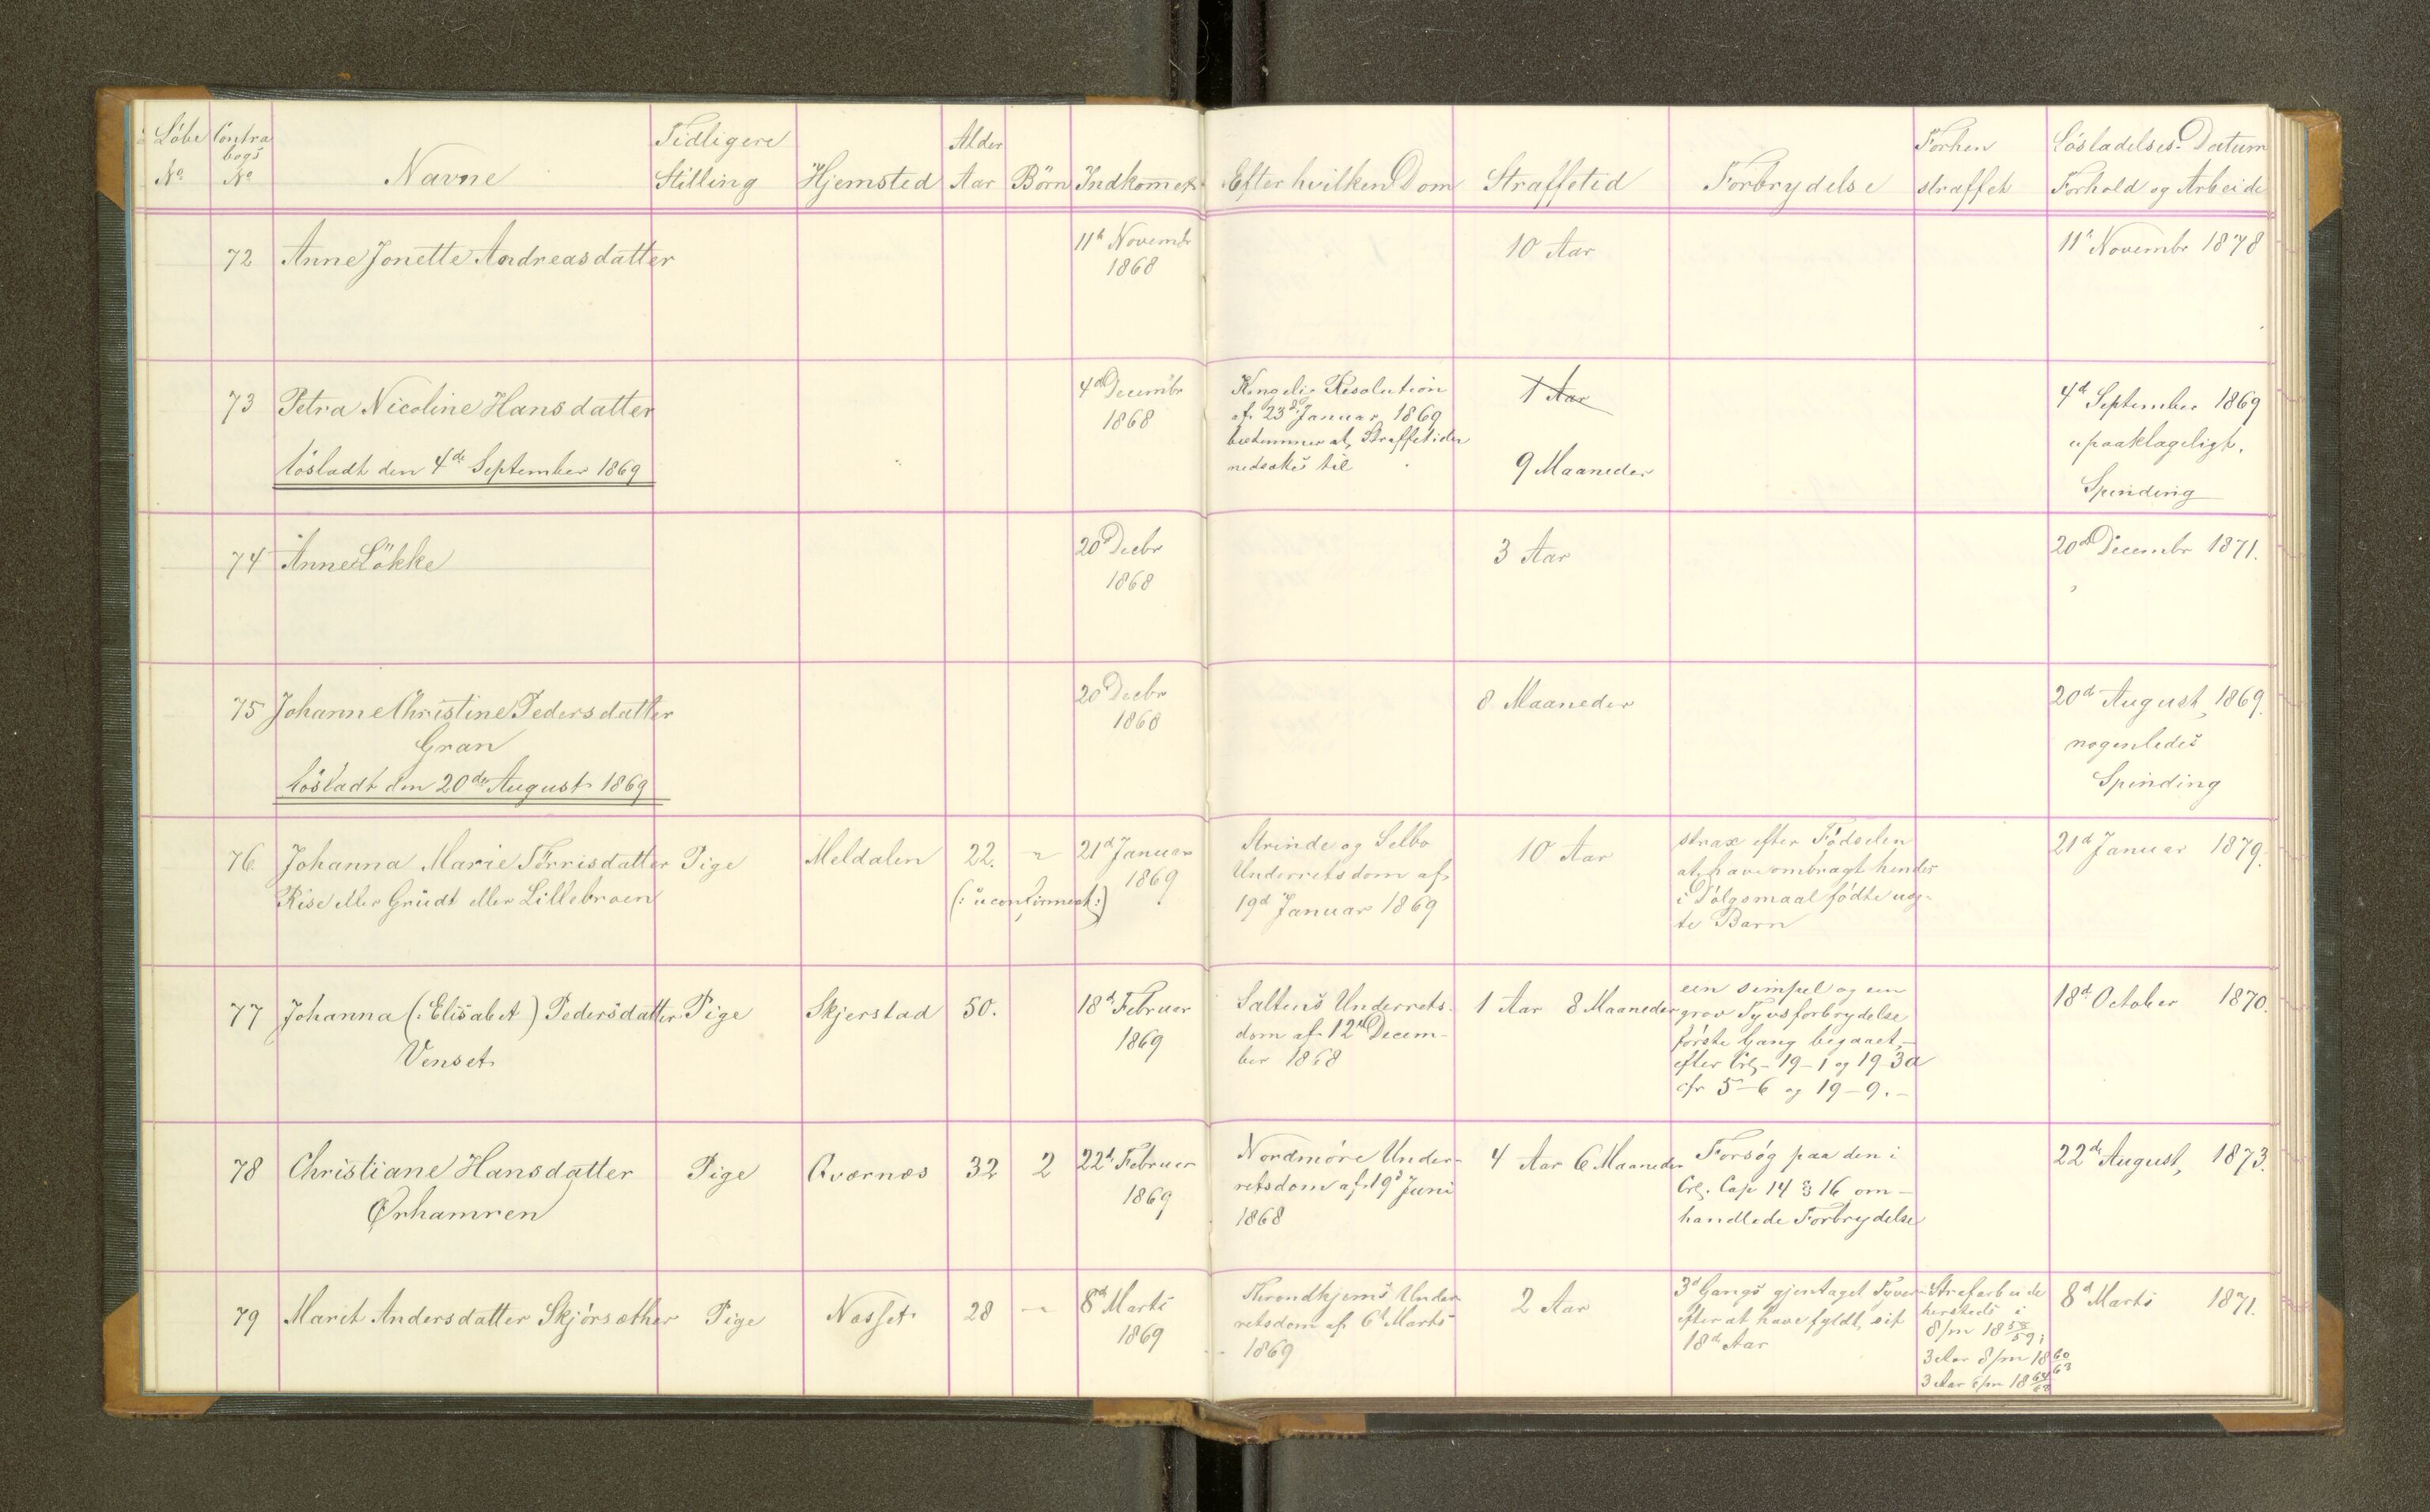 Löbe Contra Tidligere Alder Forhen Lösladelses-Datum
bogs
No No Navne Stilling Hjemsted Aar Börn Indkommet Efter hvilken Dom Straffetid Forbrydelse straffet Forhold og Arbeide
72 Anne Jonette Andreasdatter 11te Novembr 10 Aar 11te Novembr 1878
1868
73 Petra Nicoline Hansdatter 4de Decembr Kongelig Resolution 1 Aar 4de September 1869
1868 af 23de Januar 1869 upaaklageligt.
bestemmer at Straffetiden
lösladt den 4de September 1869 nedsættes til 9 Maaneder Spinding
74 Anne Lökke 20de Decbr 3 Aar 20de Decembr 1871.
1868
75 Johanne Christine Pedersdatter 20de Decbr 8 Maaneder 20de August 1869.
Gran 1868 nogenledes
lösladt den 20de August 1869 Spinding
76 Johanna Marie Törrisdatter Pige Meldalen 22. " 21de Januar Strinde og Selbo 10 Aar strax efter Födselen 21de Januar 1879.
Rise eller Grüdt eller Lillebroen (: uconfirmert :) 1869 Underretsdom af at have ombragt hendes
19de Januar 1869 i Dölgsmaal födte uæg-
te Barn
77 Johanna (: Elisabet) Pedersdatter Pige Skjerstad 50. 18de Februar Saltens Underrets- 1 Aar 8 Maaneder een simpel og een 18de October 1870.
Venset 1869 dom af 12te Decem- grov Tyvsforbrydelse
ber 1868 förste Gang begaaet,-
efter Crl. 19-1 og 19-3a
cfr 5-6 og 19-9.-
78 Christiane Hansdatter Pige Qværnæs 32 2 22de Februar Nordmöre Under- 4 Aar 6 Maaneder Forsög paa den i 22de August, 1873.
Ørhamren 1869 retsdom af 19de Juni Crl. Cap 14 § 16 om-
1868 handlede Forbrydelse
79 Marit Andersdatter Skjörsæther Pige Næsset 28 " 8de Marts Throndhjems Under- 2 Aar 3de Gangs gjentaget Tyveri Strafarbeide 8de Marts 1871.
1869 retsdom af 6te Marts efter at have fyldt sit hersteds i
1869 18de Aar 8/m 18 58/59;
3 Aar 8/m 18 60/63
3 Aar 6/m 18 64/68